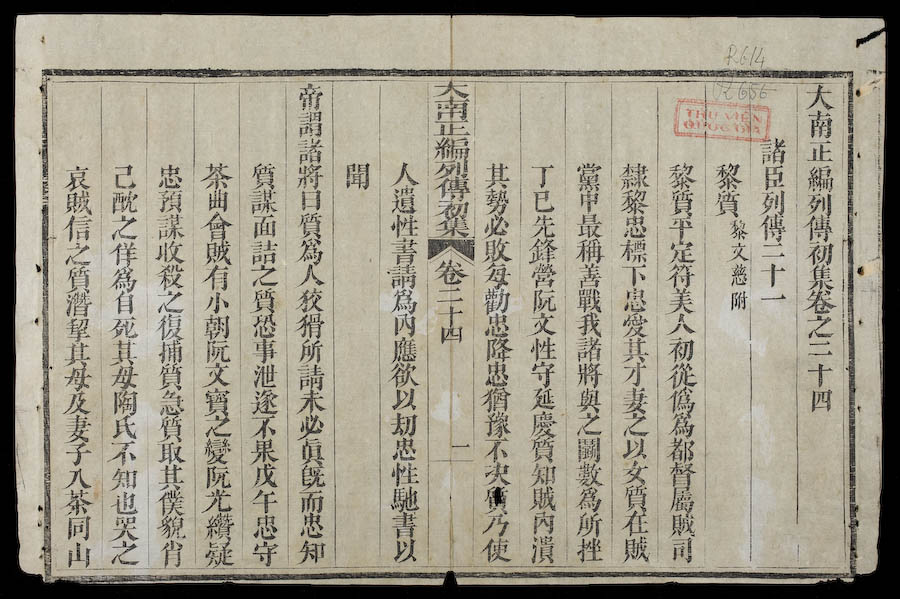 大南正編列傳初集卷之二十四
諸臣列傳二十一
黎質 黎文慈附
黎質平定符美人初從僞爲都督屬賊司
隸黎忠標下忠愛其才妻之以女質在賊
黨中最稱善戰我諸將與之鬭數爲所挫
丁巳先鋒營阮文性守延慶質知賊內潰
其勢必敗每勸忠降忠猶豫不決質乃使
大南正編列傳初集 卷二十四 一
人遺性書請爲內應欲以刧忠性馳書以
聞
帝謂諸將曰質爲人狡猾所請未必眞旣而忠知
質謀面詰之質恐事泄遂不果戊午忠守
茶曲會賊有小朝阮文寶之變阮光纘疑
忠預謀收殺之復捕質急質取其僕貌肖
己酖之佯爲自死其母陶氏不知也哭之
哀賊信之質潛挈其母及妻子入茶同山
R.614
THƯ VIỆN
QUỐC GIA